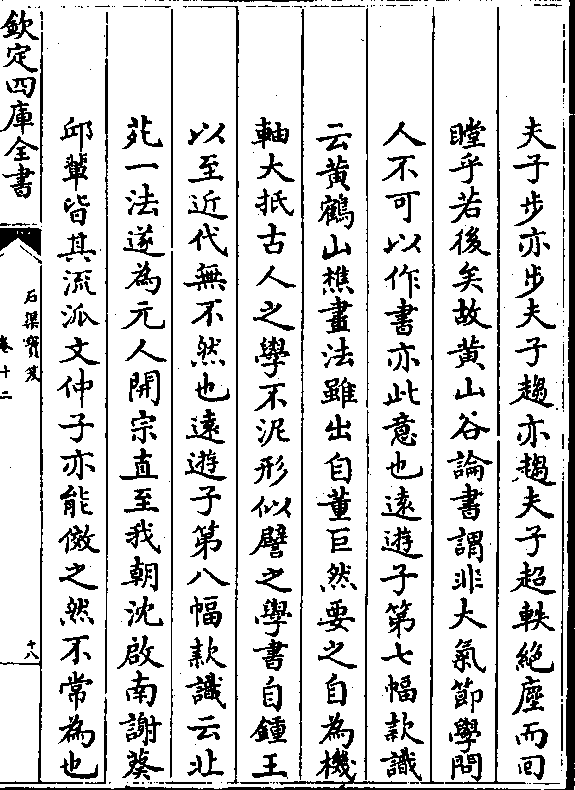 夫子步亦步夫子趨亦趨夫子超軼絶塵而回
瞠乎若後矣故黄山谷論書謂非大氣節學問
人不可以作書亦此意也逺遊子第七幅款識
云黄鶴山樵畫法雖出自董巨然要之自為機
軸大抵古人之學不泥形似譬之學書自鍾王
以至近代無不然也逺遊子第八幅款識云北
苑一法遂為元人開宗直至我朝沈啟南謝葵
邱輩皆其流派文仲子亦能倣之然不常為也
欽定四庫全書
石渠寳笈
卷十二
十八